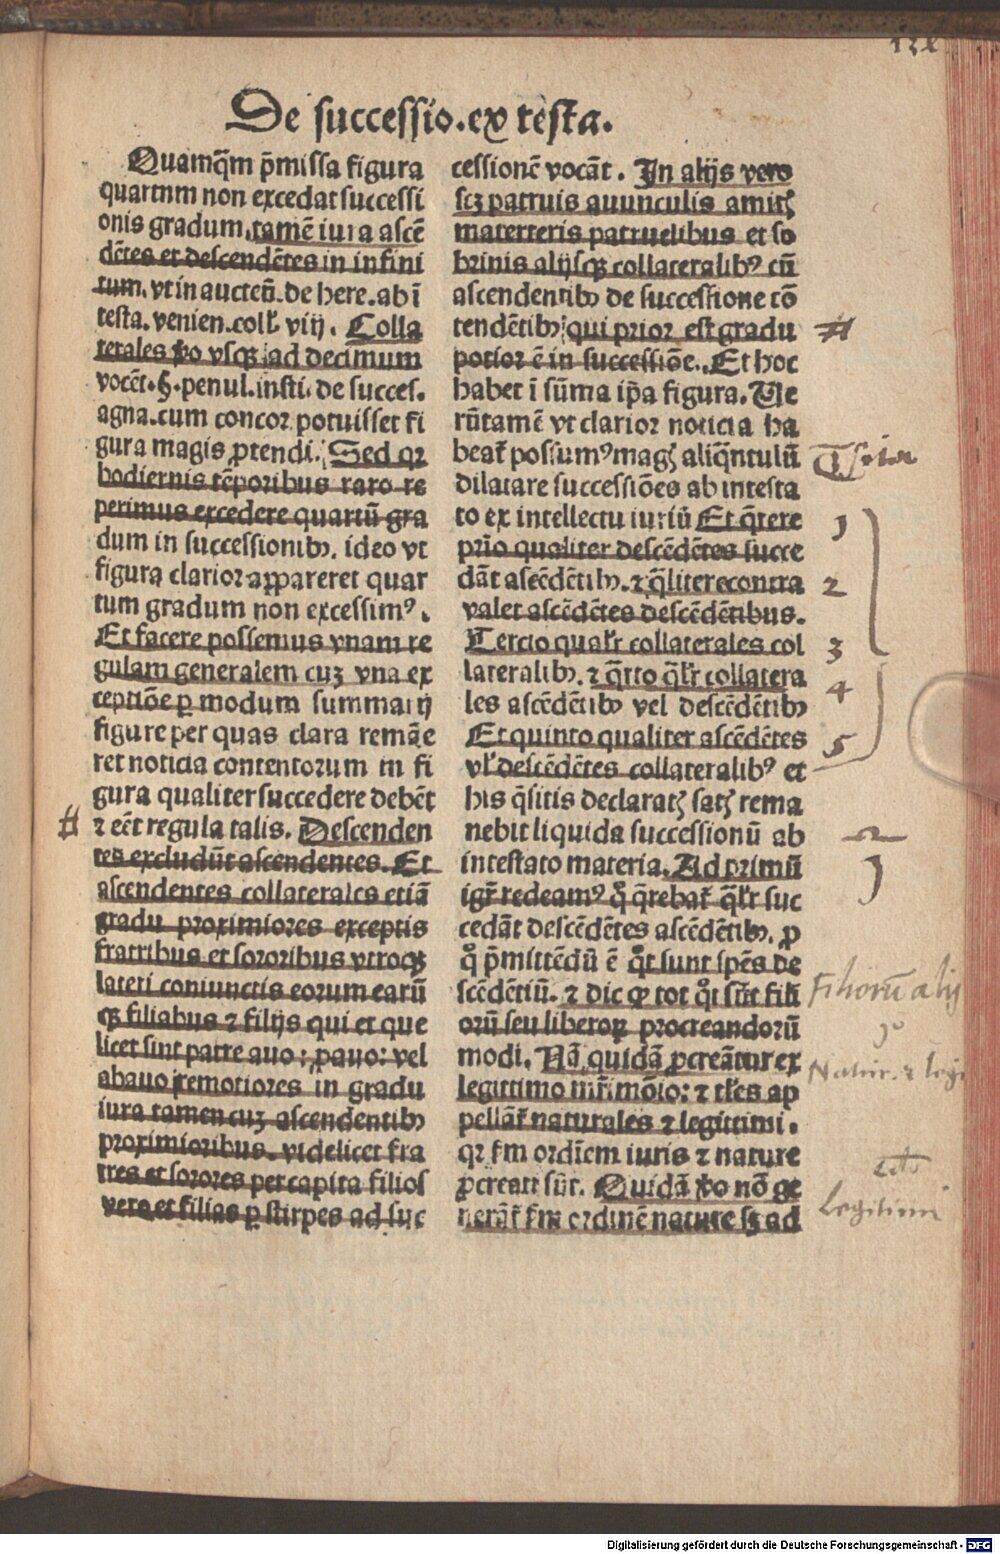 De successio.ex testa.
Quamq̃m p̃missa figura
quartnm non excedat successi
onis gradum.tamē iura ascē
dētes et descendētes in infini
tum.vt in auctcū.de here.ab ī
testa.venien.coll̃.viij. Colla
terales ꝟo vsqꝫ ad decimum
vocēt.§.penul.insti.de succes.
agna.cum concor.potuisset fi
gura magis ꝓtendi. Sed qꝛ
hodiernis tēporibus raro re
perimus excedere quartū gra
dum in successionibꝫ. ideo vt
figura clarior appareret quar
tum gradum non excessimꝰ.
Et facere possemus vnam re
gulam generalem cuꝫ vna ex
ceptiōe ꝑ modum summarij
figure per quas clara remāe
ret noticia contentorum in fi
gura qualiter succedere debēt
⁊ eēt regula talis. Descenden
tes excludūt ascendentes. Et
ascendentes collaterales etiā
gradu proximiores exceptis
fratribus et sororibus vtroqꝫ
lateri coniunctis eorum earū
qꝫ filiabus ⁊ filijs qui et que
licet sint patre auo: ꝓauo: vel
abauo remotiores in gradu
iura tamen cuꝫ ascendentibꝫ
proximioribus. videlicet fra
tres et sorores per capita filios
vero et filias ꝑ stirpes ad suc
cessionē vocāt. In alijs vero
scꝫ patruis auunculis amitꝭ
materteris patruelibus et so
brinis alijsqꝫ collateralibꝰ cū
ascendentibꝫ de successione cō
tendētibꝫ qui prior est gradu
potior ē in successiōe. Et hoc
habet ī sūma ip̄a figura. Ue
rūtamē vt clarior noticia ha
beat̃ possumꝰ magꝭ aliq̃ntulū
dilatare successiōes ab intesta
to ex intellectu iuriū Et q̃rere
prīo qualiter descēdētes succe
dāt ascēdētibꝫ. ⁊ q̃liter econtra
valet ascēdētes descēdētibus.
Tercio qualr̃ collaterales col
lateralibꝫ. ⁊ q̃rto q̃lr̃ collatera
les ascēdētibꝫ vel descēdētibꝫ
Et quinto qualiter ascēdētes
vl̃ descēdētes collateralibꝰ et
his q̃sitis declaratꝭ satꝭ rema
nebit liquida successionū ab
intestato materia. Ad primū
igr̃ redeamꝰ q̊ q̃rebat̃ q̃lr̃ suc
cedāt descēdētes ascēdētibꝫ. ꝓ
q̊ p̃mittēdū ē q̊t sunt sp̄es de
scēdētiū. ⁊ dic ꝙ tot q̊t sūt fili
orū seu liberoꝝ procreandorū
modi. Nā quidā ꝓcreātur ex
legittimo mr̃imōio: ⁊ tl̃es ap
pellāt̃ naturales ⁊ legittimi.
qꝛ ẜm ordinem iuris ⁊ nature
ꝓcreati sūt. Quidā ꝟo nō ge
nerāt̃ ẜm ordinē nature sꝫ ad
1
2
3
4
5
Filiorū alij
1º
Natur. ⁊ legi
Legitimi
Digitalisierung gefördert durch die Deutsche Forschungsgemeinschaft - DFG